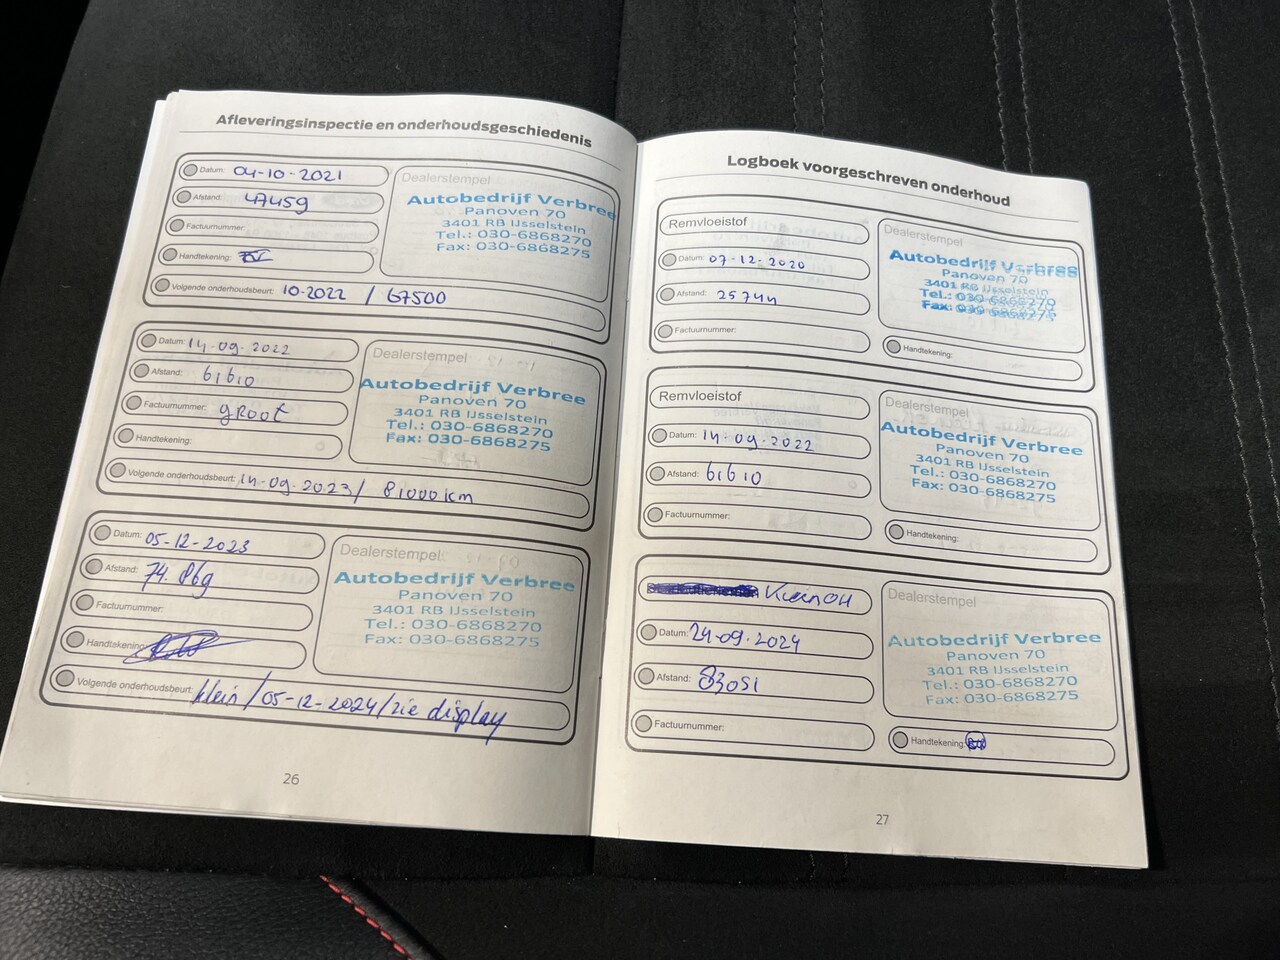 Afleveringsinspectie en onderhoudsgeschiedenis
Datum: 04-10-2021
Afstand: 47459
Factuurnummer:
Handtekening:
Volgende onderhoudsbeurt: 10-2022 / 67500
Dealerstempel
Autobedrijf Verbree
Panoven 70
3401 RB IJsselstein
Tel.: 030-6868270
Fax: 030-6868275
Datum: 14-09-2022
Afstand: 61610
Factuurnummer: GROOT
Handtekening:
Volgende onderhoudsbeurt: 14-09-2023 / 81000 km
Dealerstempel
Autobedrijf Verbree
Panoven 70
3401 RB IJsselstein
Tel.: 030-6868270
Fax: 030-6868275
Datum: 05-12-2023
Afstand: 74.869
Factuurnummer:
Handtekening:
Volgende onderhoudsbeurt: klein / 05-12-2024 / zie display
Dealerstempel
Autobedrijf Verbree
Panoven 70
3401 RB IJsselstein
Tel.: 030-6868270
Fax: 030-6868275
26
Logboek voorgeschreven onderhoud
Remvloeistof
Datum: 07-12-2020
Afstand: 25744
Factuurnummer:
Dealerstempel
Autobedrijf Verbree
Panoven 70
3401 RB IJsselstein
Tel.: 030-6868270
Fax: 030-6868275
Handtekening:
Remvloeistof
Datum: 14-09-2022
Afstand: 61610
Factuurnummer:
Dealerstempel
Autobedrijf Verbree
Panoven 70
3401 RB IJsselstein
Tel.: 030-6868270
Fax: 030-6868275
Handtekening:
Klein OH
Datum: 24-09-2024
Afstand: 83051
Factuurnummer:
Dealerstempel
Autobedrijf Verbree
Panoven 70
3401 RB IJsselstein
Tel.: 030-6868270
Fax: 030-6868275
Handtekening:
27